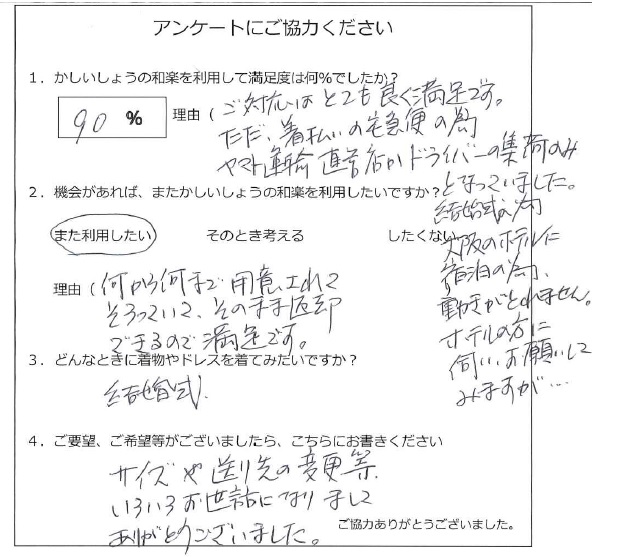 アンケートにご協力ください
1．かしいしょうの和楽を利用して満足度は何%でしたか？
90 %
理由（ご対応はとても良く満足です。
ただ、着払いの宅急便の為
ヤマト運輸直営店かドライバーの集荷のみ
となっていました。
結婚式の為
大阪のホテルに
宿泊の為、
動きがとれません。
ホテルの方に
伺い、お願いして
みますが…
2．機会があれば、またかしいしょうの和楽を利用したいですか？
また利用したい そのとき考える したくない
理由（何から何まで用意されて
そろっていて、そのまま返却
できるので満足です。
3．どんなときに着物やドレスを着てみたいですか？
結婚式．
4．ご要望、ご希望等がございましたら、こちらにお書きください
サイズや送り先の変更等、
いろいろお世話になりまして
ありがとうございました。
ご協力ありがとうございました。